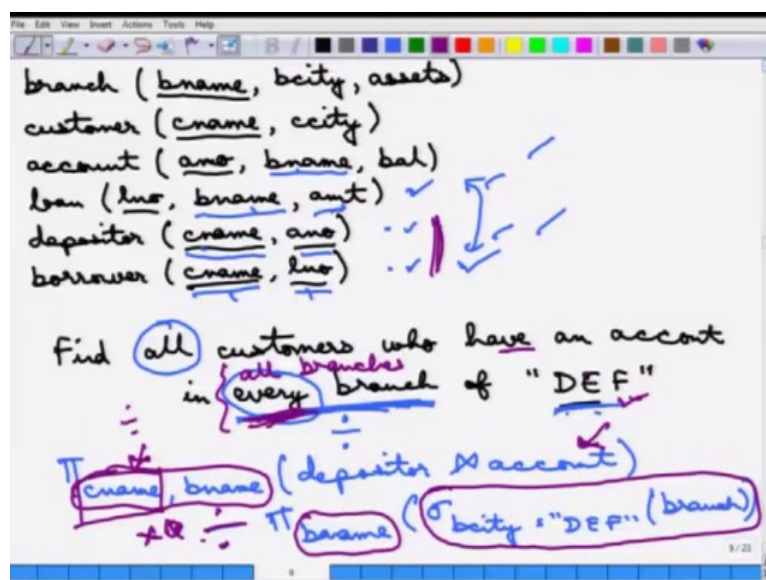 File Edit View Insert Actions Tools Help
branch (bname, bcity, assets)
customer (cname, ccity)
account (ano, bname, bal)
loan (lno, bname, amt)
depositor (cname, ano)
borrower (cname, lno)
Find all customers who have an accont
all branches
in every branch of "DEF"
÷ ÷
π cname, bname (depositor ⋈ account)
÷ π bname (σ bcity = "DEF" (branch))
9/23